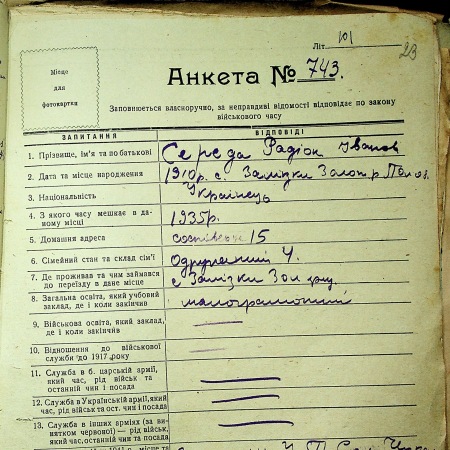 Літ. 101
23
Місце
для
фотокартки
Анкета № 743.
Заповнюється власноручно, за неправдиві відомості відповідає по закону
військового часу
ЗАПИТАННЯ ВІДПОВІДІ
1. Прізвище, ім'я та по батькові Середа Радіон Іванов
2. Дата та місце народження 1910 р. с. Залізки Золот. р Полтав.
3. Національність Українець
4. З якого часу мешкає в да-
ному місці 1935 р.
5. Домашня адреса 15
6. Сімейний стан та склад сім'ї Одружений 4.
7. Де проживав та чим займався
до переїзду в дане місце с Залізки Зол
8. Загальна освіта, який учбовий
заклад, де і коли закінчив малограмотний
9. Військова освіта, який заклад,
де і коли закінчив
10. Відношення до військової
служби до 1917 року
11. Служба в б. царській армії,
який час, рід військ та
останній чин і посада
12. Служба в Українській армії, який
час, рід військ та ост. чин і посада
13. Служба в інших арміях (за ви-
нятком червоної) — рід військ,
який час, останній чин та посада